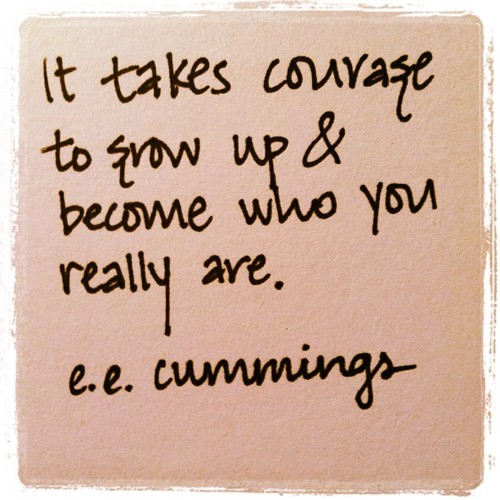 It takes courage
to grow up &
become who you
really are.
e.e. cummings